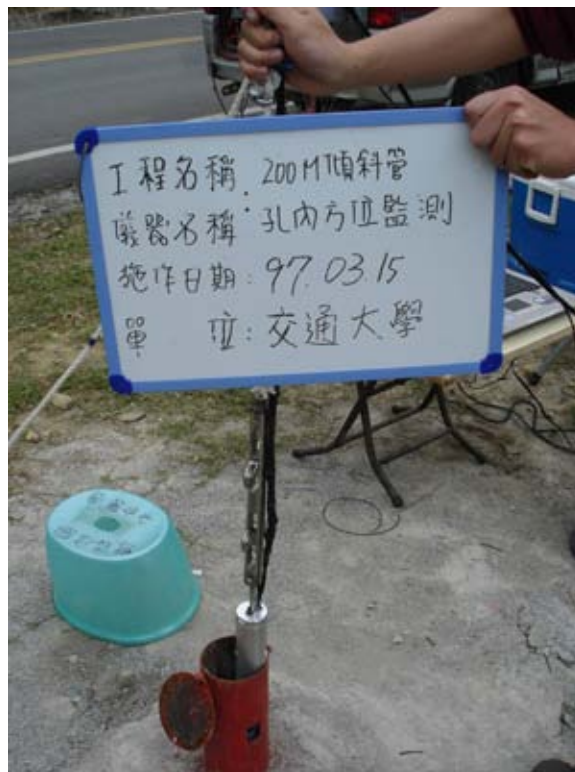 工程名稱:200M傾斜管
儀器名稱:孔內方位監測
施作日期:97.03.15
單 位:交通大學